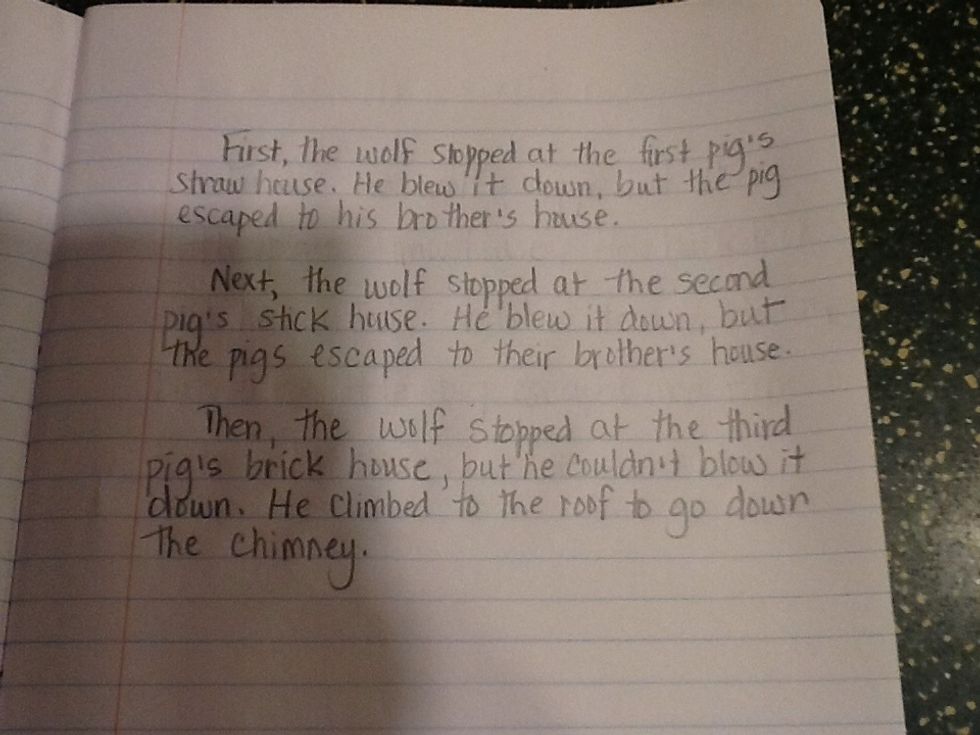 First, the wolf stopped at the first pig's
straw house. He blew it down, but the pig
escaped to his brother's house.
Next, the wolf stopped at the second
pig's stick house. He blew it down, but
the pigs escaped to their brother's house.
Then, the wolf stopped at the third
pig's brick house, but he couldn't blow it
down. He climbed to the roof to go down
the chimney.